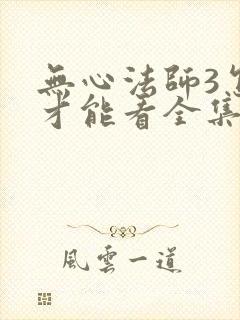 無心法師3怎
才能看全集
風雲一道